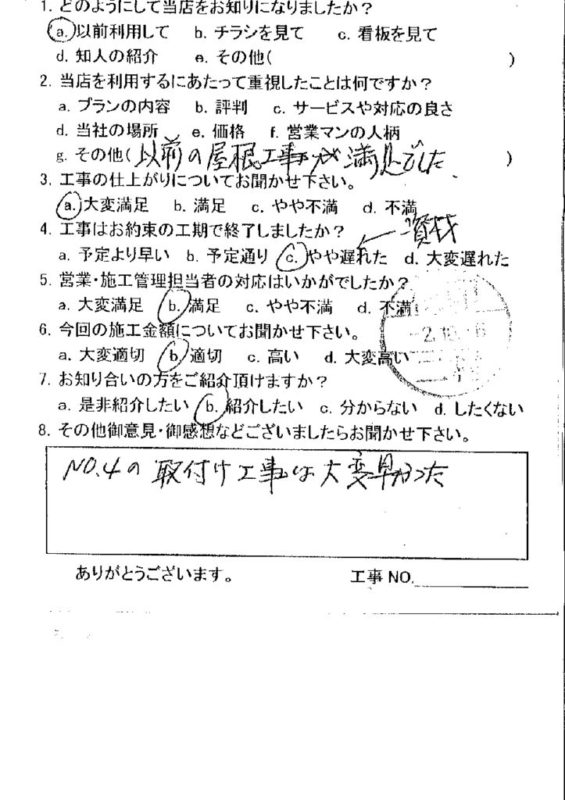 1. どのようにして当店をお知りになりましたか?
a. 以前利用して b. チラシを見て c. 看板を見て
d. 知人の紹介 e. その他( )
2. 当店を利用するにあたって重視したことは何ですか?
a. プランの内容 b. 評判 c. サービスや対応の良さ
d. 当社の場所 e. 価格 f. 営業マンの人柄
g. その他(以前の屋根工事が満足でした。)
3. 工事の仕上がりについてお聞かせ下さい。
a. 大変満足 b. 満足 c. やや不満 d. 不満
4. 工事はお約束の工期で終了しましたか? ← 資材
a. 予定より早い b. 予定通り c. やや遅れた d. 大変遅れた
5. 営業・施工管理担当者の対応はいかがでしたか?
a. 大変満足 b. 満足 c. やや不満 d. 不満
6. 今回の施工金額についてお聞かせ下さい。
a. 大変適切 b. 適切 c. 高い d. 大変高い
7. お知り合いの方をご紹介頂けますか?
a. 是非紹介したい b. 紹介したい c. 分からない d. したくない
8. その他御意見・御感想などございましたらお聞かせ下さい。
NO.4の取付け工事は大変早かった
ありがとうございます。 工事NO.